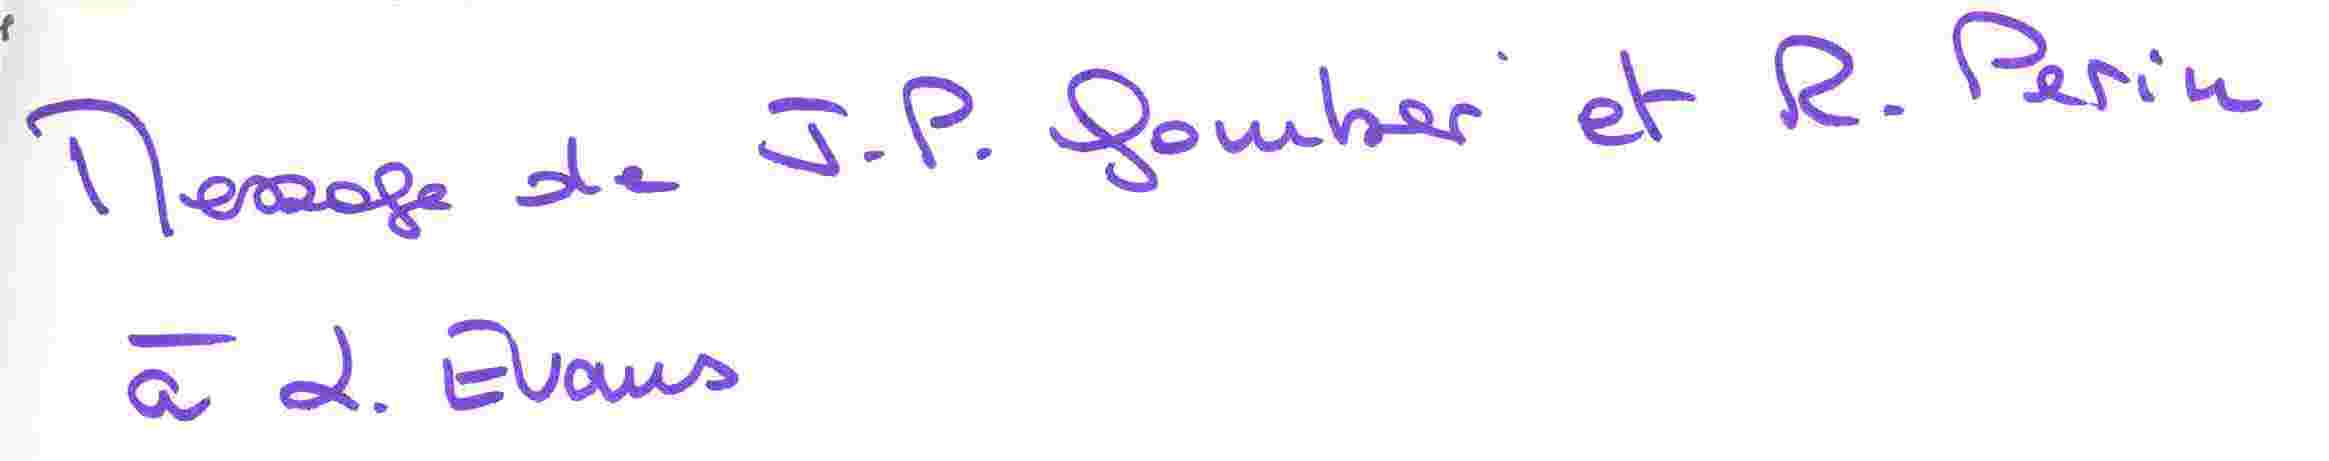 Message de J.P. Gourber et R. Perin
à L. Evans